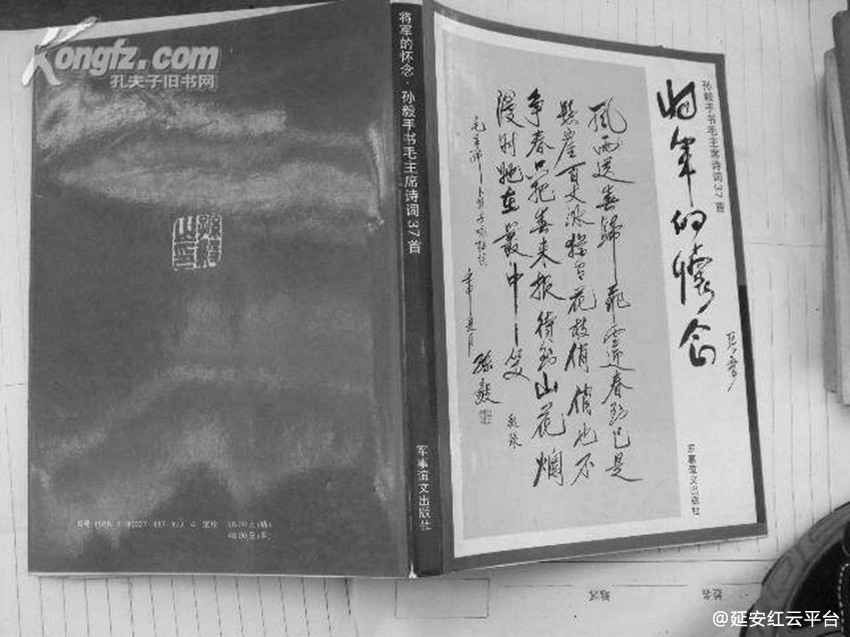 Kongfz.com
孔夫子旧书网
将军的怀念·孙毅手书毛主席诗词37首
军事谊文出版社
孙毅手书毛主席诗词37首
将军的怀念
军事谊文出版社
风雨送春归飞雪迎春到已是
悬崖百丈冰犹有花枝俏俏也不
争春只把春来报待到山花烂
漫时她在丛中笑
毛主席卜算子咏梅词
孙毅
定价
48.00元(平)
@延安红云平台